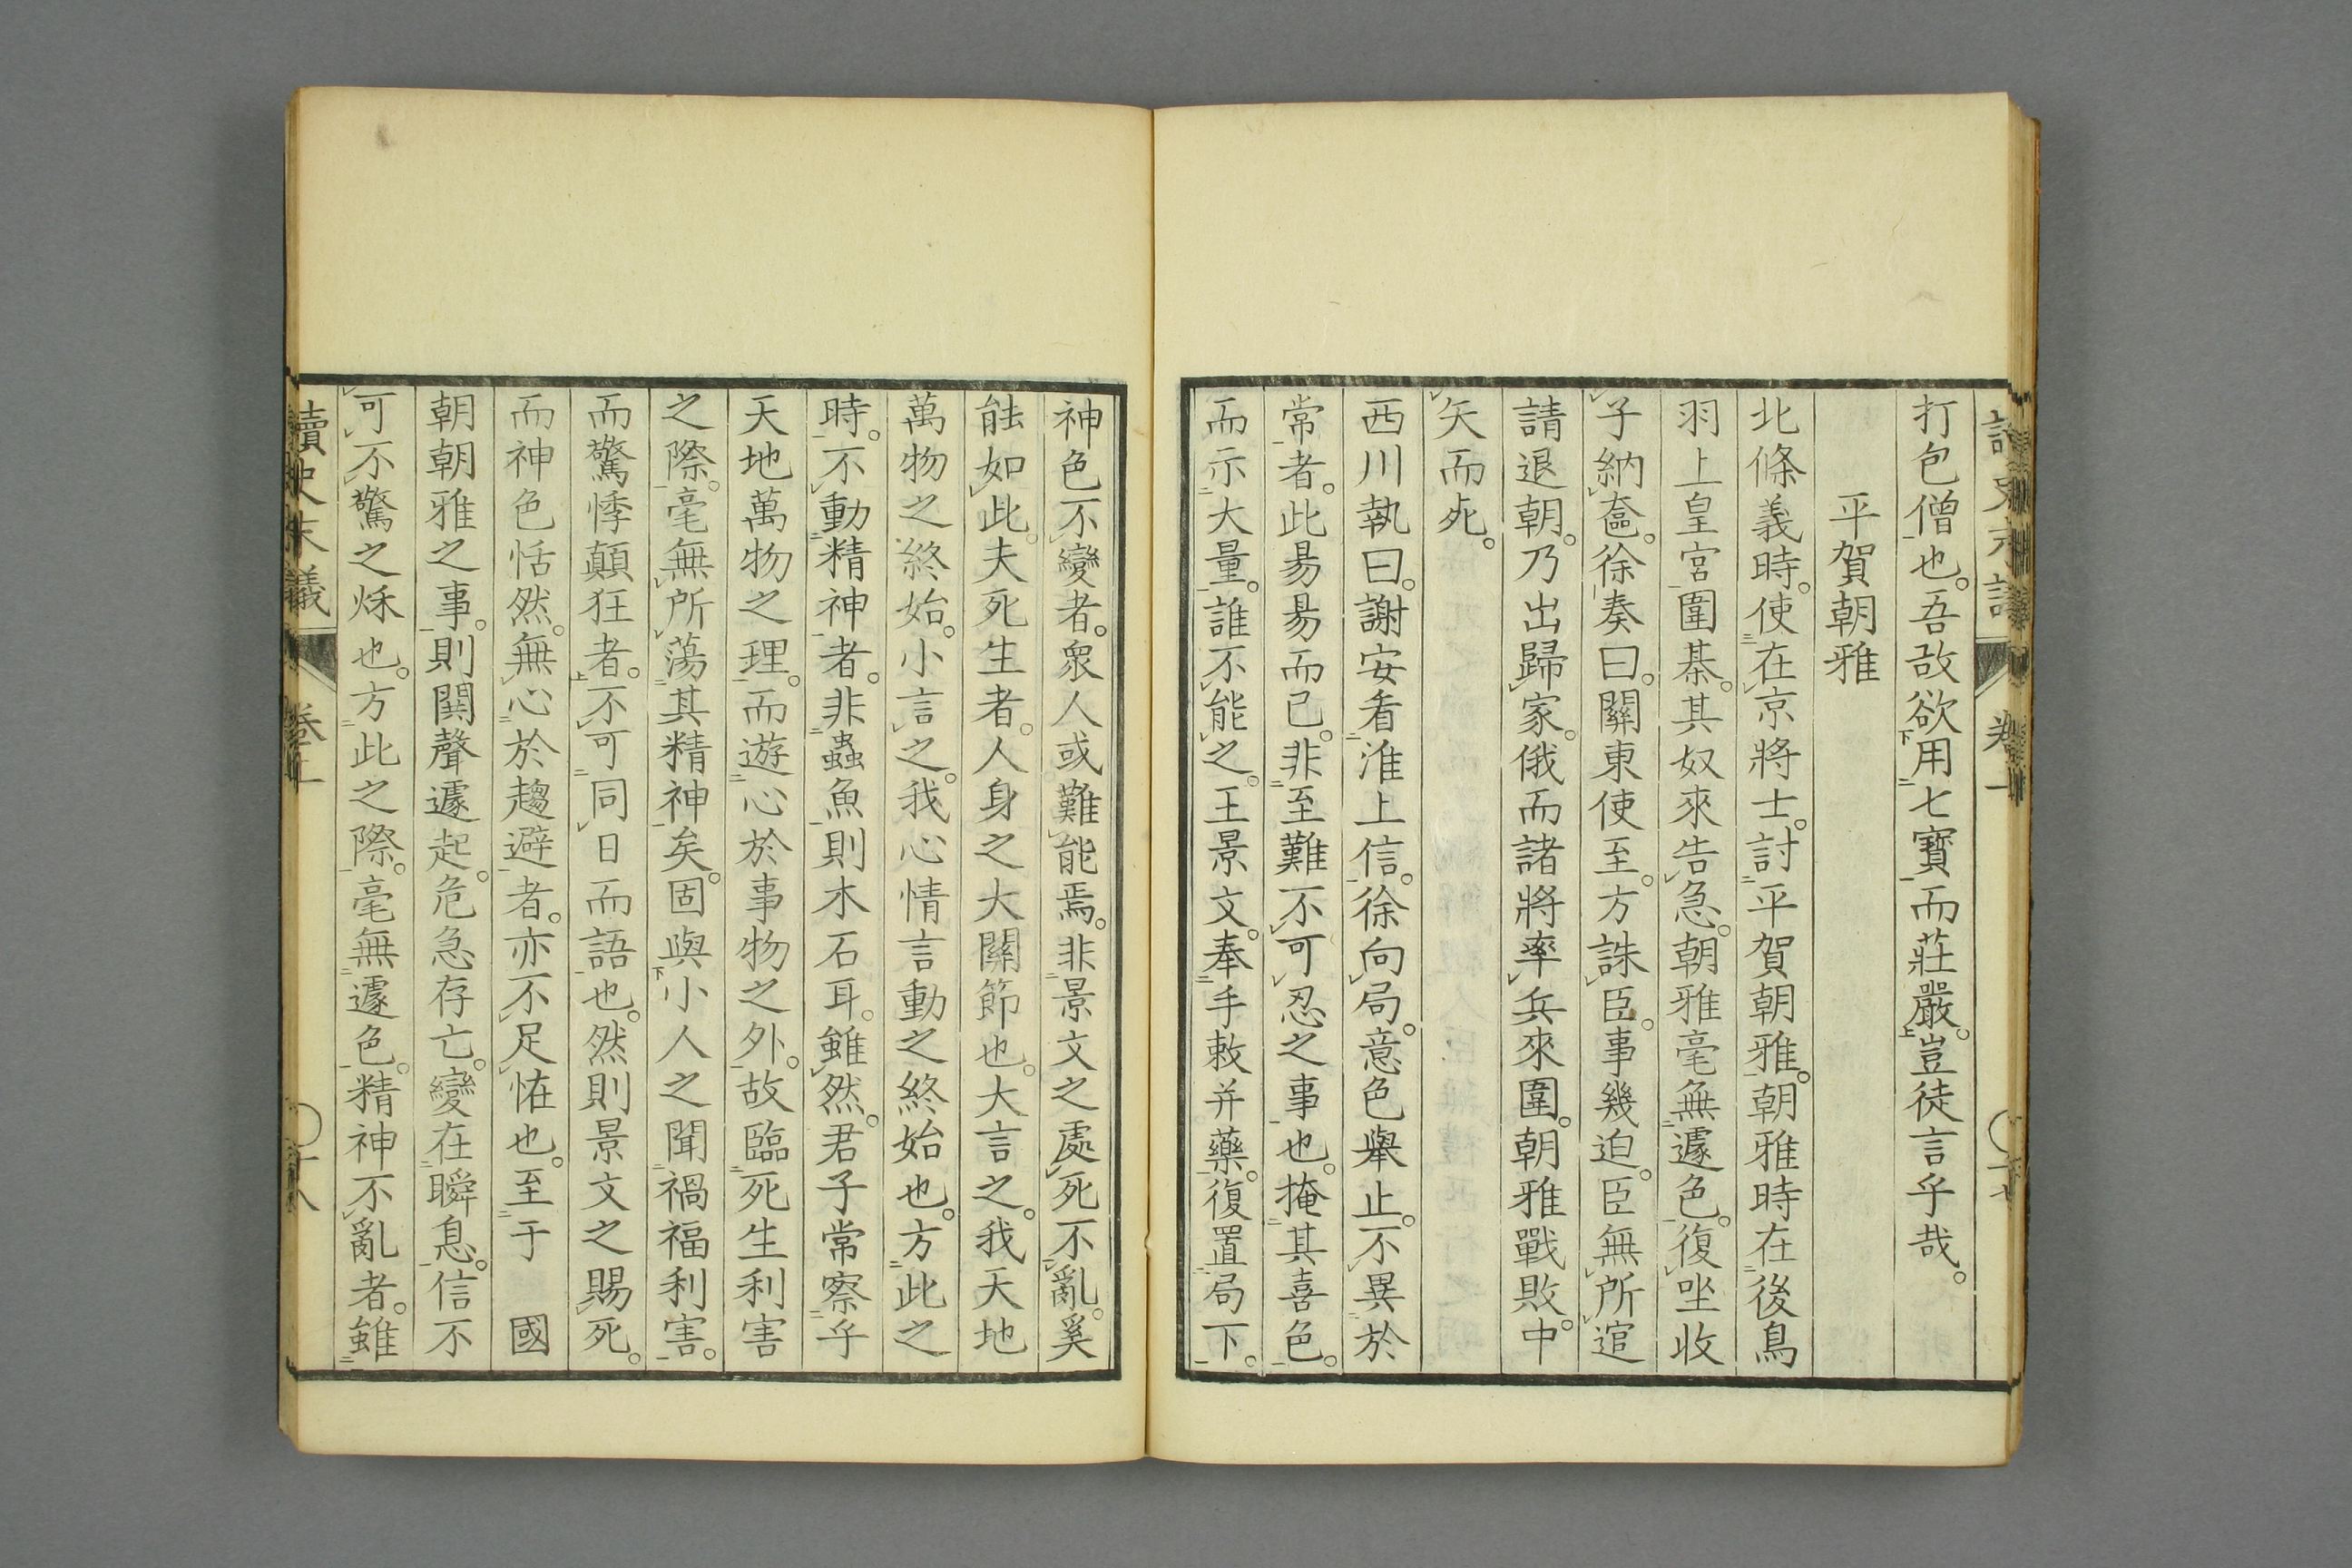 打包僧也。吾故欲用七寶而莊嚴。豈徒言乎哉。
平賀朝雅
北條義時。使在京將士。討平賀朝雅。朝雅時在後鳥
羽上皇宮圍棊。其奴來告急。朝雅毫無遽色。復坐收
子納奩。徐奏曰。關東使至。方誅臣。事幾迫。臣無所逭
請退朝。乃出歸家。俄而諸將率兵來圍。朝雅戰敗。中
矢而死。
西川執曰。謝安看淮上信。徐向局。意色舉止。不異於
常者。此易易而已。非至難不可忍之事也。掩其喜色。
而示大量。誰不能之。王景文。奉手敕并藥。復置局下。
神色不變者。衆人或難能焉。非景文之處死不亂。奚
能如此。夫死生者。人身之大關節也。大言之。我天地
萬物之終始。小言之。我心情言動之終始也。方此之
時。不動精神者。非蟲魚則木石耳。雖然。君子常察乎
天地萬物之理。而遊心於事物之外。故臨死生利害
之際。毫無所蕩其精神矣。固與小人之聞禍福利害。
而驚悸顛狂者。不可同日而語也。然則景文之賜死。
而神色恬然。無心於趨避者。亦不足恠也。至于　國
朝朝雅之事。則鬨聲遽起。危急存亡。變在瞬息。信不
可不驚之烁也。方此之際。毫無遽色。精神不亂者。雖
讀史末議　卷上　十八